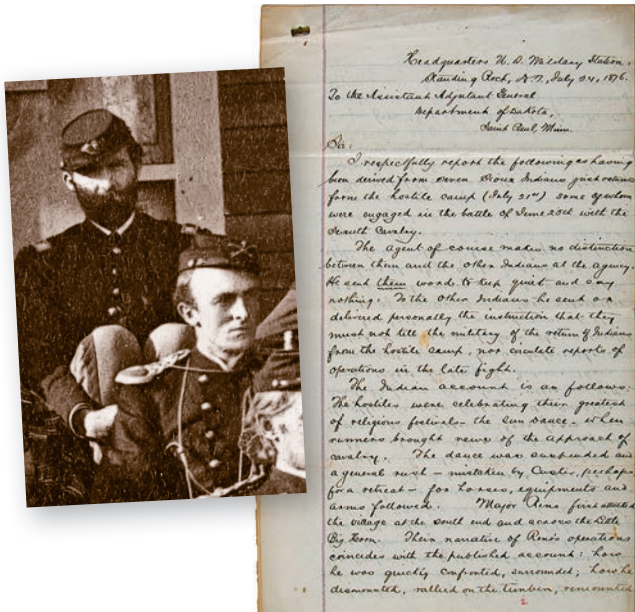 Headquarters U.S. Military Station,
Standing Rock, D.T., July 24, 1876.
To the Assistant Adjutant General
Department of Dakota,
Saint Paul, Minn.
Sir:
I respectfully report the following as having
been derived from seven Sioux Indians just returned
from the hostile camp (July 21st) some of whom
were engaged in the battle of June 25th with the
Seventh Cavalry.
The Agent of course makes no distinction
between them and the other Indians at the agency.
He sent them word to keep quiet and say
nothing. To the other Indians he sent or
delivered personally the instruction that they
must not tell the military of the return of Indians
from the hostile camp, nor circulate reports of
operations in the late fight.
The Indian account is as follows:
The hostiles were celebrating their greatest
of religious festivals – the sun dance – when
runners brought news of the approach of
cavalry. The dance was suspended and
a general rush – mistaken by Custer, perhaps
for a retreat – for horses, equipments and
arms followed. Major Reno first attacked
the village at the south end and across the Little
Big Horn. Their narrative of Reno's operations
coincides with the published account: how
he was quickly confronted, surrounded; how he
dismounted, rallied in the timber, remounted
2